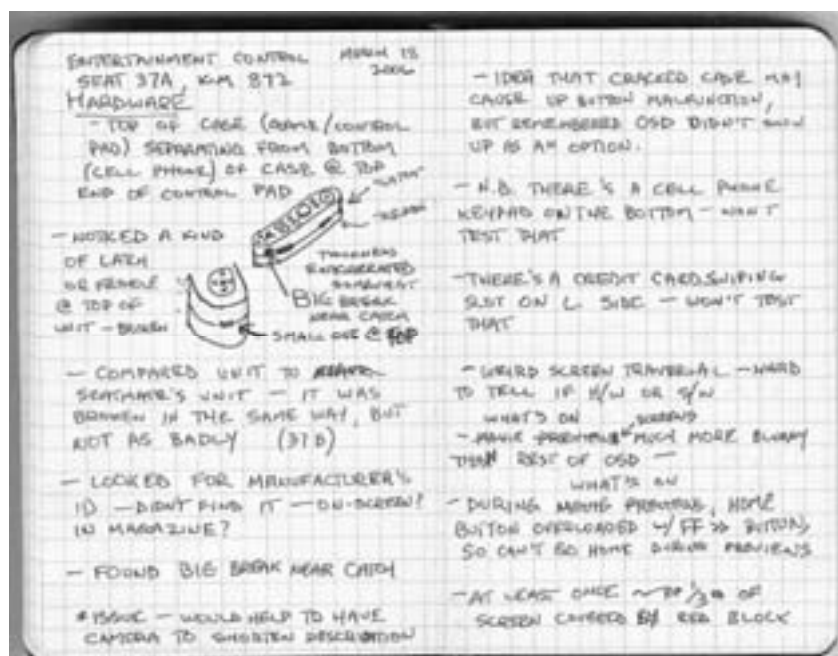 ENTERTAINMENT CONTROL MARCH 18
SEAT 37A, KLM 872 2006
HARDWARE
- TOP OF CASE (GAME/CONTROL
PAD) SEPARATING FROM BOTTOM
(CELL PHONE) OF CASE @ TOP
END OF CONTROL PAD
- NOTICED A KIND
OF LATCH
OR
@ TOP OF
UNIT - BROKEN
THICKNESS
EXAGGERATED
SOMEWHAT
BIG BREAK
NEAR CATCH
SMALL ONE @ TOP
- COMPARED UNIT TO
SEATMATE'S UNIT - IT WAS
BROKEN IN THE SAME WAY, BUT
NOT AS BADLY (37B)
- LOOKED FOR MANUFACTURER'S
ID - DIDN'T FIND IT - ON-SCREEN?
IN MAGAZINE?
- FOUND BIG BREAK NEAR CATCH
* ISSUE - WOULD HELP TO HAVE
CAMERA TO SHORTEN DESCRIPTION
- IDEA THAT CRACKED CASE MAY
CAUSE UP BUTTON MALFUNCTION,
BUT REMEMBERED OSD DIDN'T SHOW
UP AS AN OPTION.
- N.B. THERE'S A CELL PHONE
KEYPAD ON THE BOTTOM - WON'T
TEST THAT
- THERE'S A CREDIT CARD SWIPING
SLOT ON L. SIDE - WON'T TEST
THAT
- WEIRD SCREEN TRAVERSAL - HARD
TO TELL IF H/W OR S/W
WHAT'S ON SCREENS
- MOVIE PREVIEWS MUCH MORE BLURRY
THAN REST OF OSD -
WHAT'S ON
- DURING MOVIE PREVIEWS, HOME
BUTTON OVERLOADED W/ FF >> BUTTON,
SO CAN'T GO HOME DURING PREVIEWS
- AT LEAST ONCE ~ 1/3 OF
SCREEN COVERED BY RED BLOCK